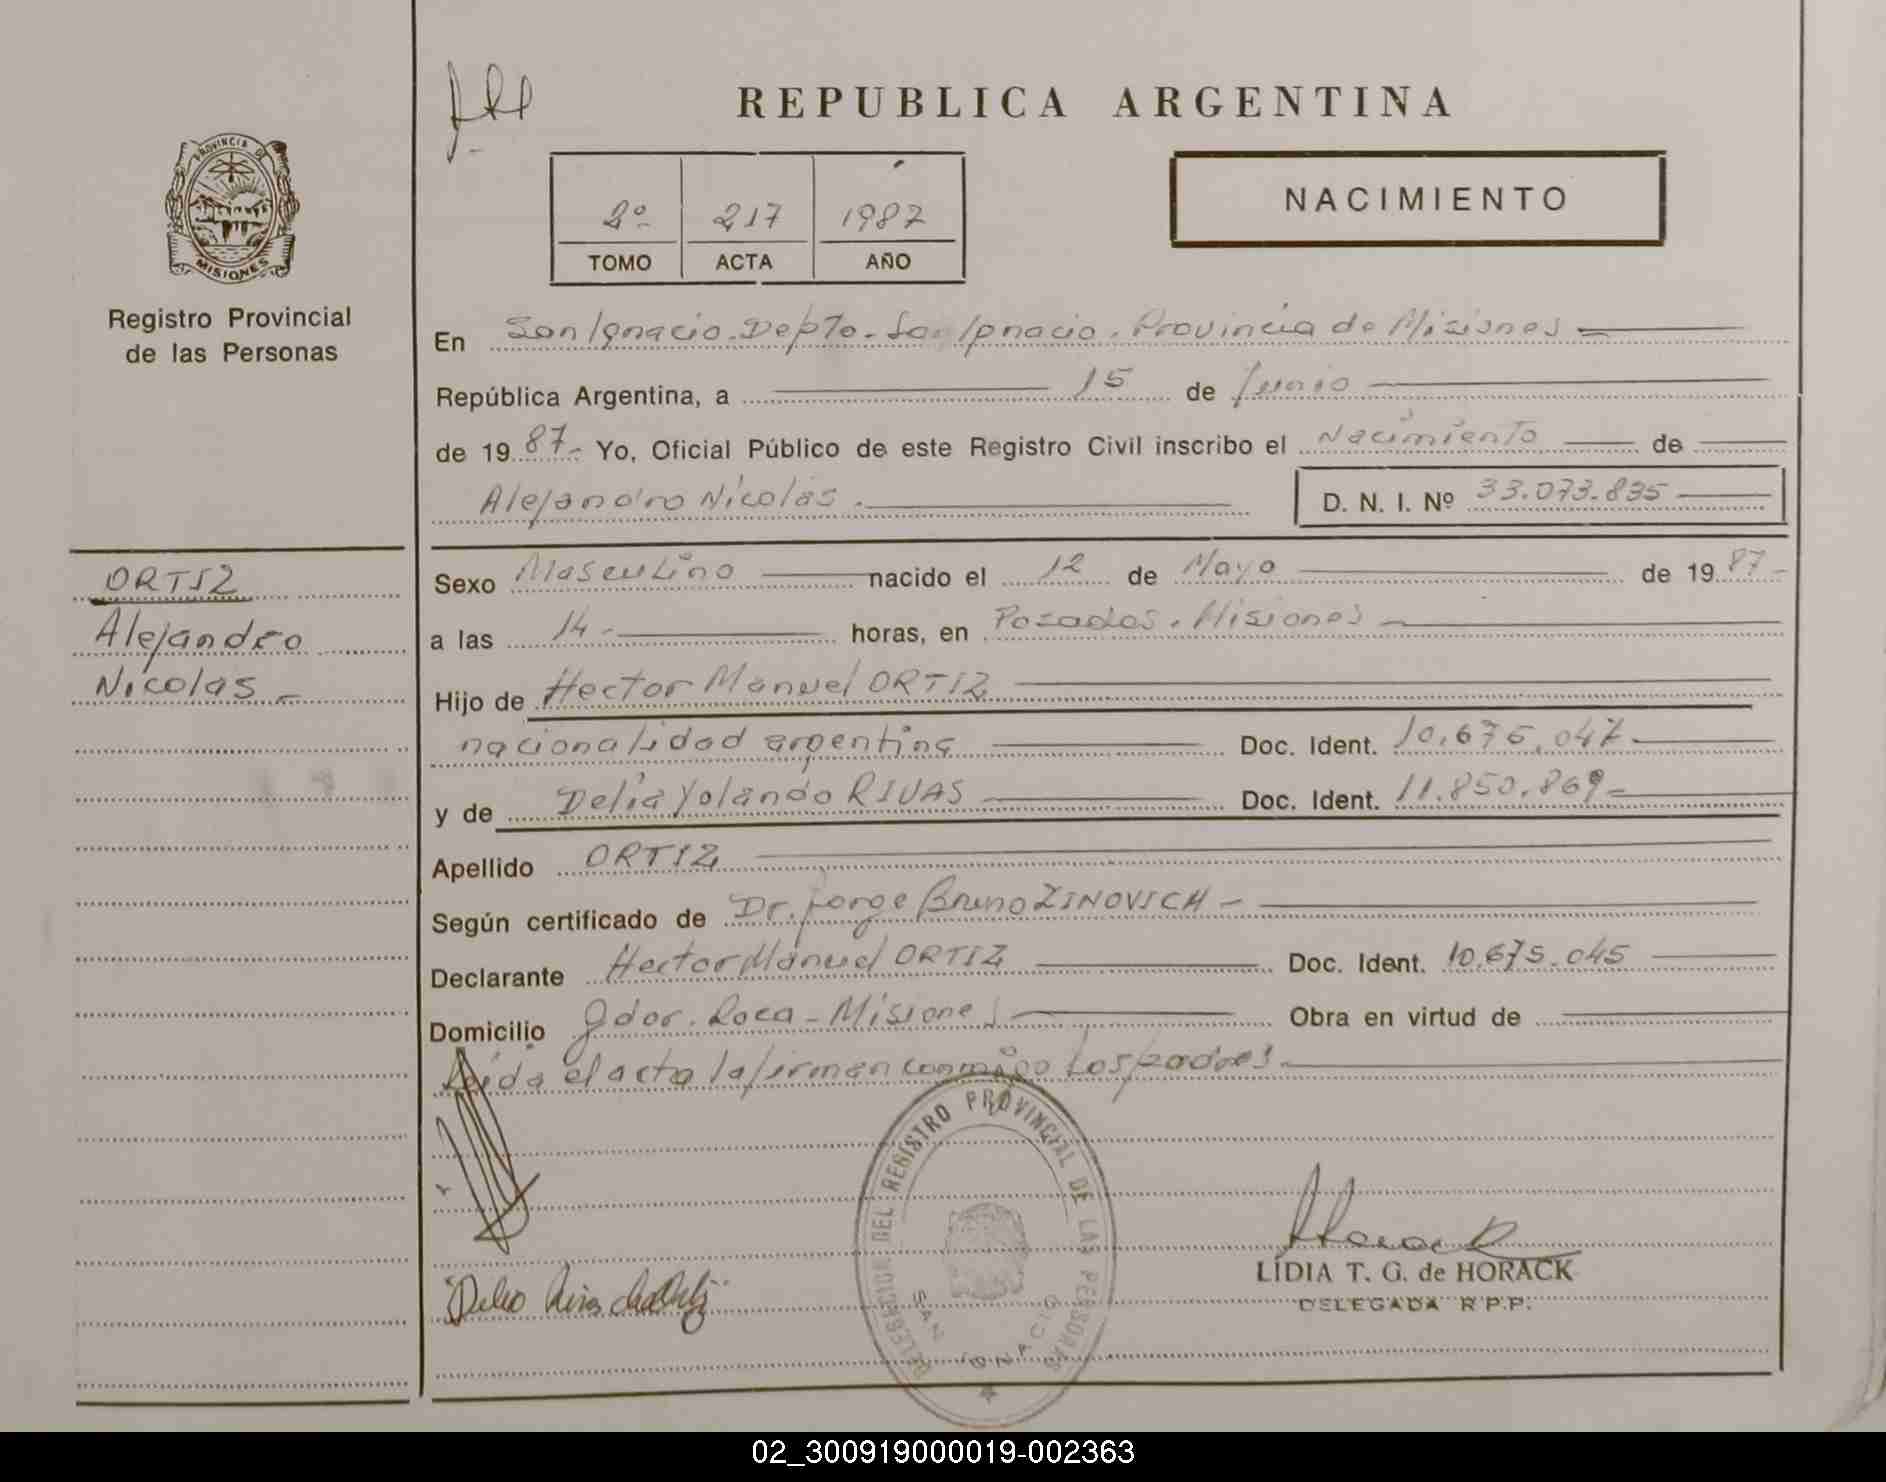 REPUBLICA ARGENTINA
PROVINCIA DE MISIONES
Registro Provincial
de las Personas
2º 217 1987
TOMO ACTA AÑO
NACIMIENTO
En San Ignacio. Depto. San Ignacio. Provincia de Misiones
República Argentina, a 15 de Junio
de 1987.- Yo, Oficial Público de este Registro Civil inscribo el Nacimiento de
Alejandro Nicolás. D. N. I. Nº 33.073.835
ORTIZ
Alejandro
Nicolas.-
Sexo Masculino nacido el 12 de Mayo de 1987-
a las 14.- horas, en Posadas. Misiones
Hijo de Hector Manuel ORTIZ
nacionalidad argentina Doc. Ident. 10.675.047
y de Delia Yolanda RIVAS Doc. Ident. 11.850.869-
Apellido ORTIZ
Según certificado de Dr. Jorge Bruno ZINOVICH -
Declarante Hector Manuel ORTIZ Doc. Ident. 10.675.045
Domicilio Gdor. Roca - Misiones Obra en virtud de
Leida el acta la firman conmigo los padres
DELEGACION DEL REGISTRO PROVINCIAL DE LAS PERSONAS
SAN IGNACIO
Horack
LIDIA T. G. de HORACK
DELEGADA R.P.P.
02_300919000019-002363